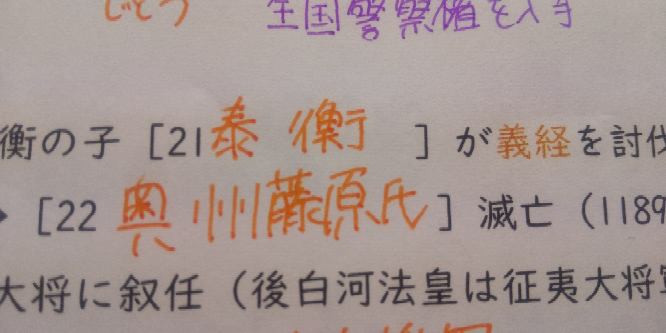 じとう 全国警察権を入手
衡の子 [21 泰衡 ] が義経を討伐
[22 奥州藤原氏 ] 滅亡 (1189
大将に叙任 (後白河法皇は征夷大将軍